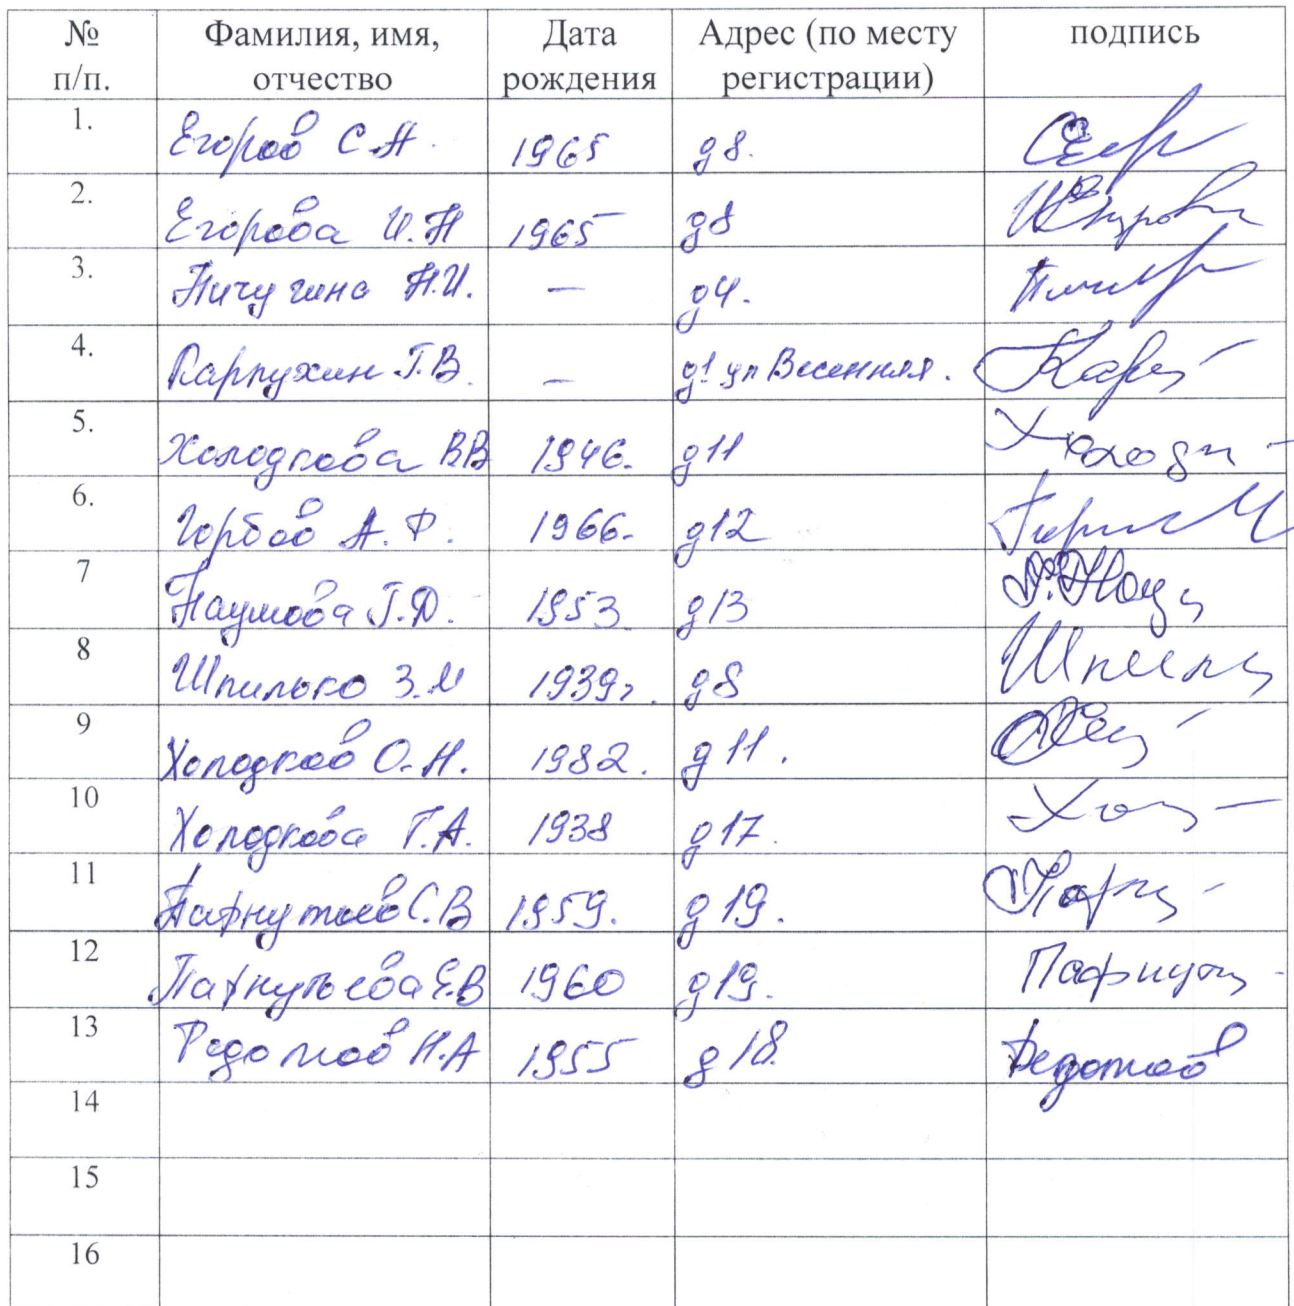 № п/п. Фамилия, имя, отчество Дата рождения Адрес (по месту регистрации) подпись
1. Егоров С.А. 1965 д8.
2. Егорова И.Н 1965 д8
3. Пичугина Н.И. — д4.
4. Карпухин Г.В. — д1 ул Весенняя.
5. Холодкова В.В 1946. д11
6. Горбов А.Ф. 1966. д12
7 Наумова Г.Д. 1953 д13
8 Шпилько З.М 1939г. д8
9 Холодков О.Н. 1982. д11.
10 Холодкова Г.А. 1938 д17.
11 Пафнутьев С.В 1959. д19.
12 Пафнутьева Е.В 1960 д19. Пафнут
13 Федотов Н.А 1955 д18. Федотов
14
15
16